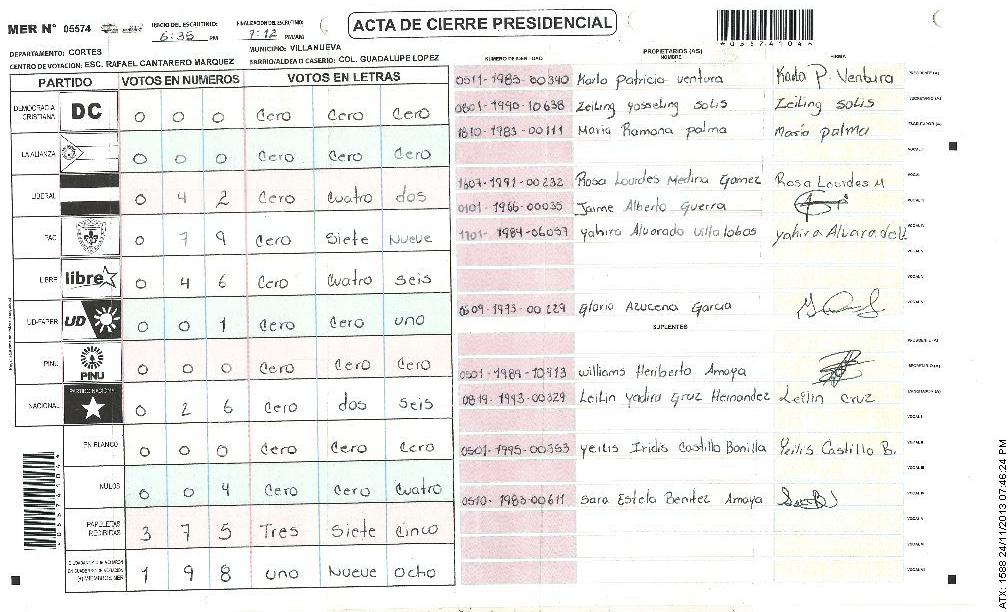 MER N° 05574 INICIO DEL ESCRUTINIO: 6:35 PM FINALIZACION DE ESCRUTINIO: 7:12 PM/AM
ACTA DE CIERRE PRESIDENCIAL
DEPARTAMENTO: CORTES MUNICIPIO: VILLANUEVA
CENTRO DE VOTACION: ESC. RAFAEL CANTARERO MARQUEZ BARRIO/ALDEA O CASERIO: COL. GUADALUPE LOPEZ
PARTIDO VOTOS EN NUMEROS VOTOS EN LETRAS
DEMOCRACIA CRISTIANA DC 0 0 0 Cero Cero Cero
LA ALIANZA 0 0 0 Cero Cero Cero
LIBERAL 0 4 2 Cero cuatro dos
PAC 0 7 9 Cero Siete Nueve
LIBRE libre 0 4 6 Cero Cuatro seis
UD-FAPER UD 0 0 1 Cero Cero uno
PINU PINU 0 0 0 Cero Cero Cero
NACIONAL PARTIDO NACIONAL 0 2 6 Cero dos seis
EN BLANCO 0 0 0 Cero Cero Cero
NULOS 0 0 4 Cero Cero Cuatro
PAPELETAS RECIBIDAS 3 7 5 Tres Siete cinco
1 9 8 uno Nueve Ocho
PROPIETARIOS (AS)
NUMERO DE IDENTIDAD NOMBRE FIRMA
0511-1983-00390 Karla patricia ventura Karla P. Ventura PRESIDENTE (A)
0801-1990-10638 Zeiling yosseling solis Zeiling solis SECRETARIO (A)
1810-1983-00111 Maria Ramona palma Maria palma ESCRUTADOR (A)
VOCAL I
1607-1991-00232 Rosa Lourdes Medina Gomez Rosa Lourdes M VOCAL II
0101-1966-00035 Jaime Alberto Guerra VOCAL III
1101-1984-06057 yahira Alvarado villalobos VOCAL IV
VOCAL V
0509-1973-00229 Gloria Azucena Garcia
SUPLENTES
PRESIDENTE (A)
0501-1989-10913 williams Heriberto Amaya SECRETARIO (A)
0819-1993-00329 Leilin Yadira Cruz Hernandez Leilin Cruz ESCRUTADOR (A)
VOCAL I
0501-1995-00353 yeilis Iridis Castillo Bonilla Yeilis Castillo B. VOCAL II
VOCAL III
0510-1983-00611 sara Estela Benitez Amaya VOCAL IV
VOCAL V
ATX: 1588 24/11/2013 07:46:24 PM